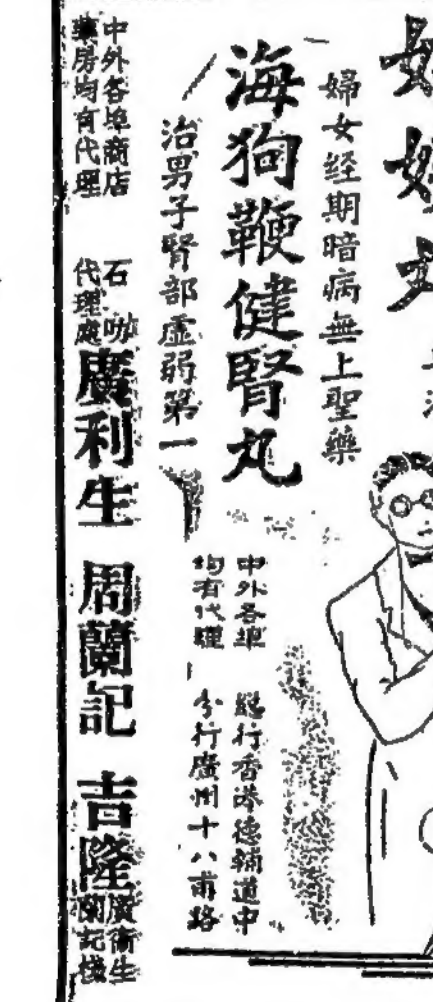 婦女经期暗病無上聖藥
海狗鞭健腎丸
治男子腎部虛弱第一
中外各埠
均有代理
總行香港德輔道中
分行廣州十八甫路
中外各埠商店
藥房均有代理
石叻
代理處
廣利生 周蘭記 吉隆
廣衛生
蘭記棧